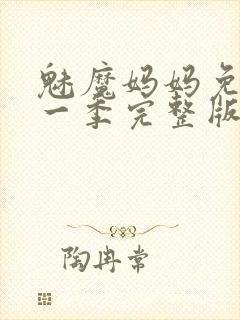 魅魔妈妈免
一季完整版
陶冉常